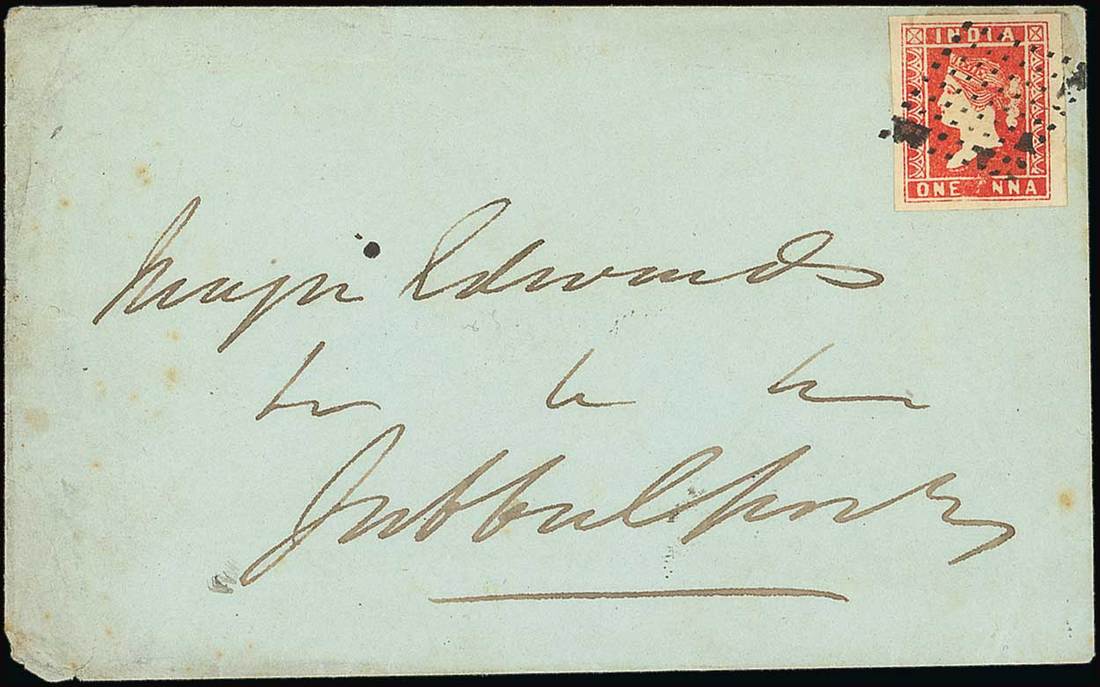 INDIA
ONE ANNA
Major Edwards
Jubbulpore